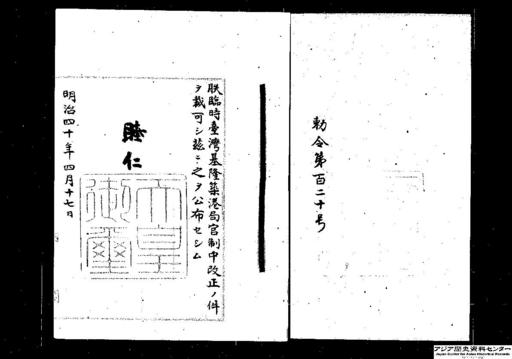 勅令第百二十号
朕臨時臺灣基隆築港局官制中改正ノ件
ヲ裁可シ茲ニ之ヲ公布セシム
睦仁
天皇
御璽
明治四十年四月十七日
アジア歴史資料センター
Japan Center for Asian Historical Records